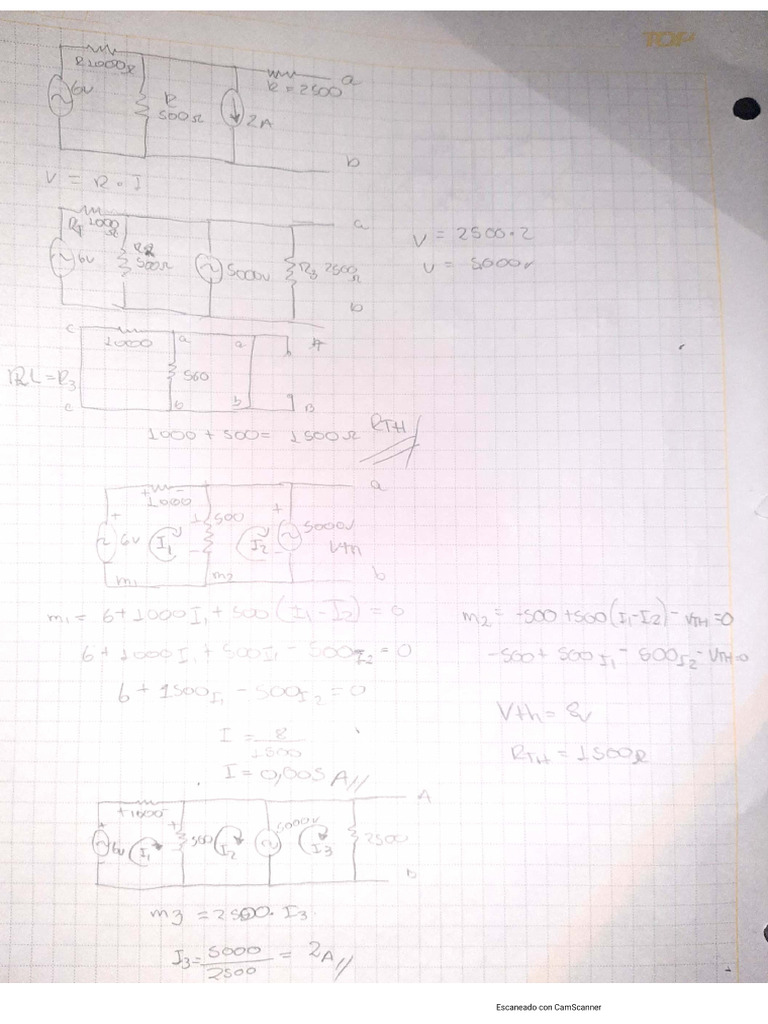 TOP
R 1000Ω
6v
R
500Ω
2A
R = 2500
a
b
V = R · I
R1 1000Ω
6v
R2
500Ω
5000v
R3 2500Ω
a
b
V = 2500·2
V = 5000v
c
1000
a
a
A
RL = R3
560
c
b
b
B
1000 + 500 = 1500Ω RTH
+ -
1000
a
+
6v
I1
+
500
I2
+
5000v
Vth
m1
m2
b
m1 = 6+1000I1 + 500 (I1-I2) = 0
m2 = -500 + 500 (I1-I2) - VTH = 0
6 + 1000I1 + 500I1 - 500I2 = 0
-500 + 500I1 - 500I2 - VTH=0
6 + 1500I1 - 500I2 = 0
Vth = 8v
RTH = 1500Ω
I = 8/1500
I = 0,005 A//
+1000-
A
+
6v
I1
+
500
I2
5000v
I3
2500
b
m3 = 2500 · I3
I3 = 5000/2500 = 2A//
Escaneado con CamScanner